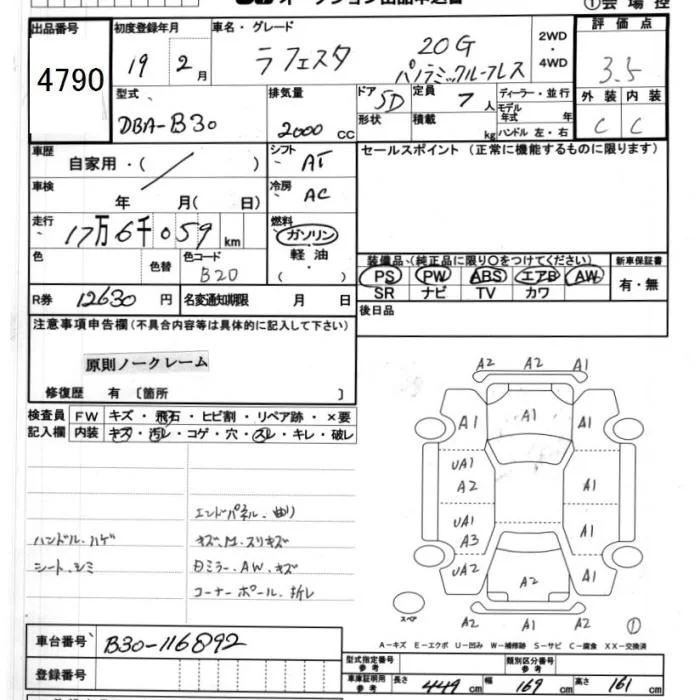 オークション出品申込書
①会場控
出品番号 初度登録年月 車名・グレード 評価点
4790 19 2月 ラフェスタ 20G パノラミックルーフレス 2WD・4WD 3.5
型式 排気量 ドア 定員 ディーラー・並行 外装 内装
DBA-B30 2000cc 5D 7人 モデル年式 年 C C
形状 積載 kg ハンドル 左・右
車歴 自家用・( ) シフト AT セールスポイント(正常に機能するものに限ります)
車検 年 月( 日) 冷房 AC
走行 17万6千059km 燃料 ガソリン・軽油 ( )
色 色替 色コード B20
装備品(純正品に限り○をつけてください) 新車保証書
PS PW ABS エアB AW 有・無
SR ナビ TV カワ
R券 12630円 名変通知期限 月 日 後日品
注意事項申告欄(不具合内容等は具体的に記入して下さい)
原則ノークレーム
修復歴 有〔箇所 〕
検査員 FW キズ・飛石・ヒビ割・リペア跡・×要
記入欄 内装 キズ・汚レ・コゲ・穴・スレ・キレ・破レ
エンドパネル、曲り
ハンドル、ハゲ キズ、M、スリキズ
シート、シミ 月ミラー、AW、キズ
コーナーポール、折レ
A2 A2 A1
A1 A1 A1
UA1
A2 A1
UA1
A3 A1
UA2 A2 A1
スペア A2 A2 A1 ①
A-キズ E-エクボ U-凹み W-補修跡 S-サビ C-腐食 XX-交換済
車台番号 B30-116892
型式指定番号 参考 類別区分番号 参考
登録番号
車庫証明用 参考 長さ 449cm 幅 169cm 高さ 161cm